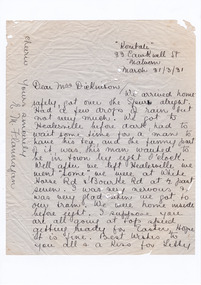 "Rontali"
83 Cawkwell St
Malvern
March 31/3/31
Dear Mrs Dickinson,
We arrived home
safely, got over the Spur alright,
Had a few drops of rain but
not very much. We got to
Healesville before dark had to
wait some time for a man to
have his tea, and the funny part
of it was this man wanted to
be in town by eight o'clock.
Well after we left Healesville we
went "some" we were at White
Horse Rd & Bourke Rd at ¼ past
seven. I was very nervous. I
was very glad when we got to
our tram. We were home inside
before eight. I suppose you
are all going at top speed
getting ready for Easter. Hope
it is fine. Best Wishes to
you all & a kiss for Letty
Yours sincerely
M. Flannagan